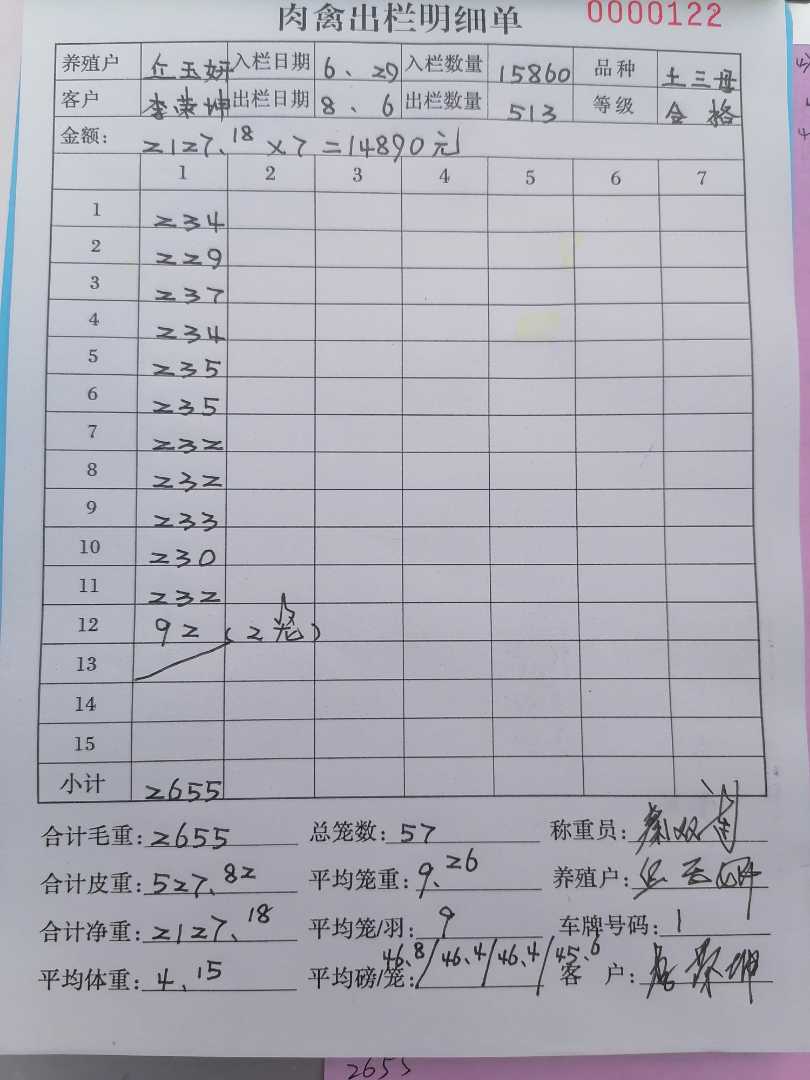 肉禽出栏明细单 0000122
养殖户 丘玉妍 入栏日期 6、29 入栏数量 15860 品种 土三母
客户 李荣坤 出栏日期 8、6 出栏数量 513 等级 合格
金额: 2127.18×7=14890元
1 2 3 4 5 6 7
1 234
2 229
3 237
4 234
5 235
6 235
7 232
8 232
9 233
10 230
11 232
12 92 (2笼)
13
14
15
小计 2655
合计毛重: 2655 总笼数: 57 称重员:
合计皮重: 527.82 平均笼重: 9.26 养殖户:
合计净重: 2127.18 平均笼/羽: 9 车牌号码: 1
平均体重: 4.15 平均磅/笼: 46.8/46.4/46.4/45.6 客户:
2655